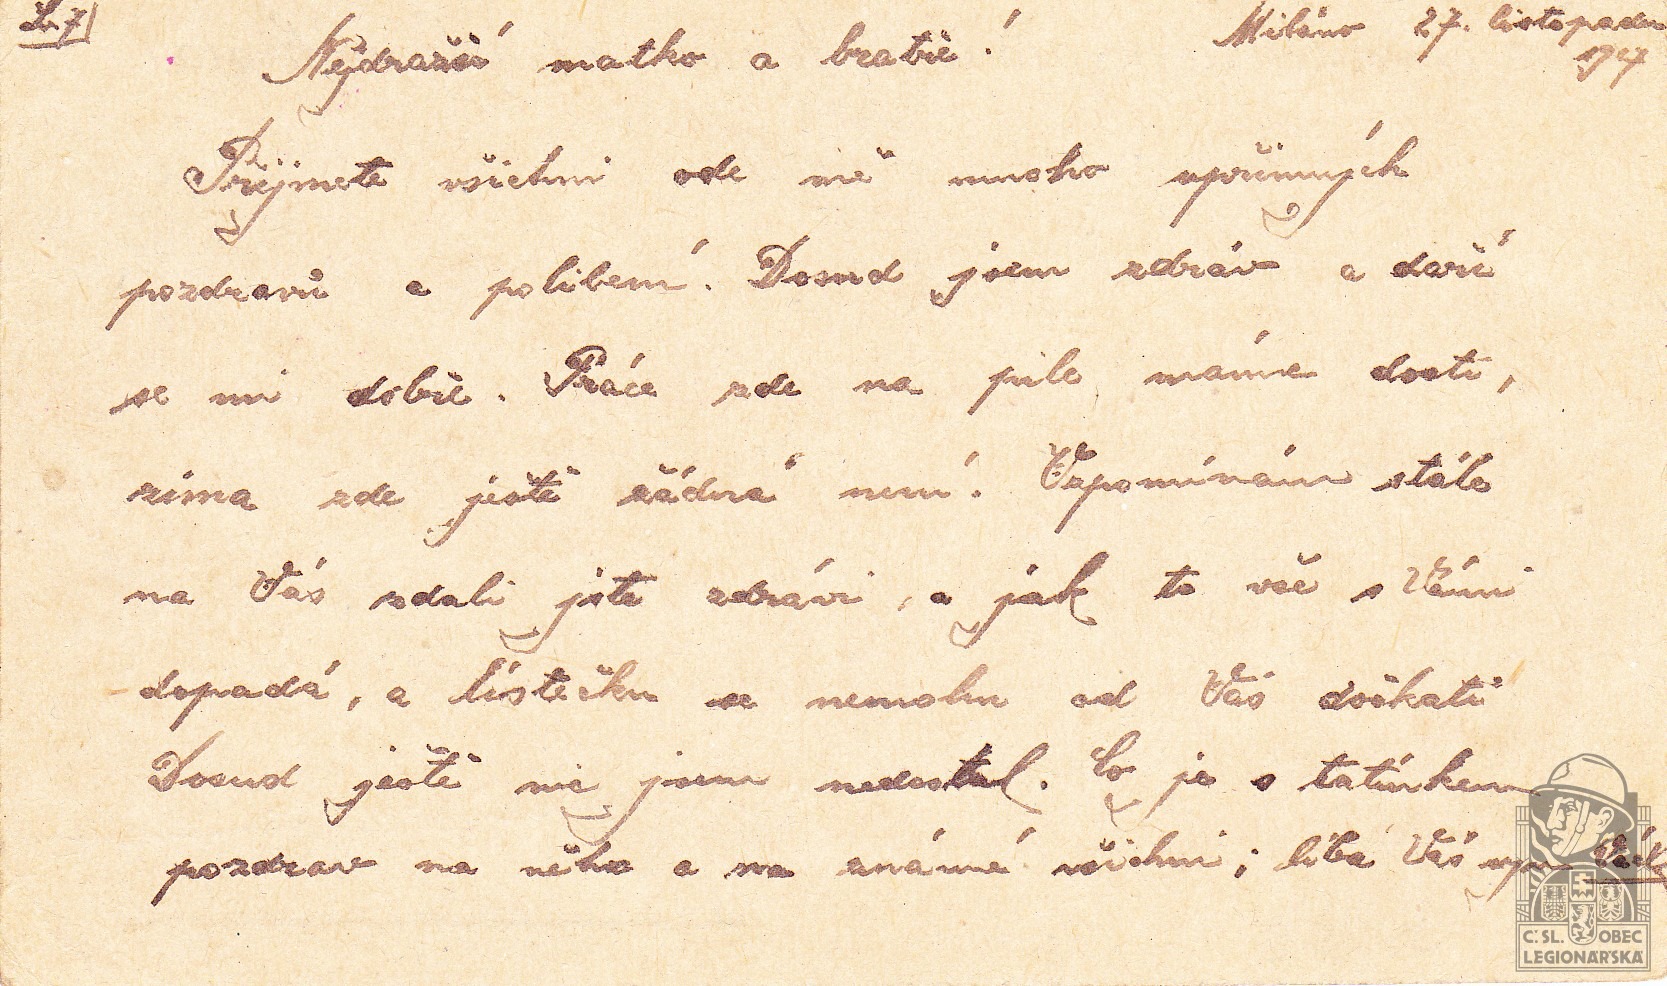 L. 7)
Miláno 27. listopadu
1917
Nejdražší matko a bratře!
Přijmete všichni ode mě mnoho upřímných
pozdravů a políbení. Dosud jsem zdráv a daří
se mi dobře. Práce zde na pile máme dosti,
zima zde ještě žádná není. Vzpomínám stále
na Vás zdali jste zdrávi, a jak to vše s Vámi
dopadá, a lístečku se nemohu od Vás dočkati
Dosud ještě nic jsem nedostal. Co je s tatínkem
pozdrav na něho a na známé všichni; líbá Váš
Č.SL. OBEC
LEGIONÁŘSKÁ